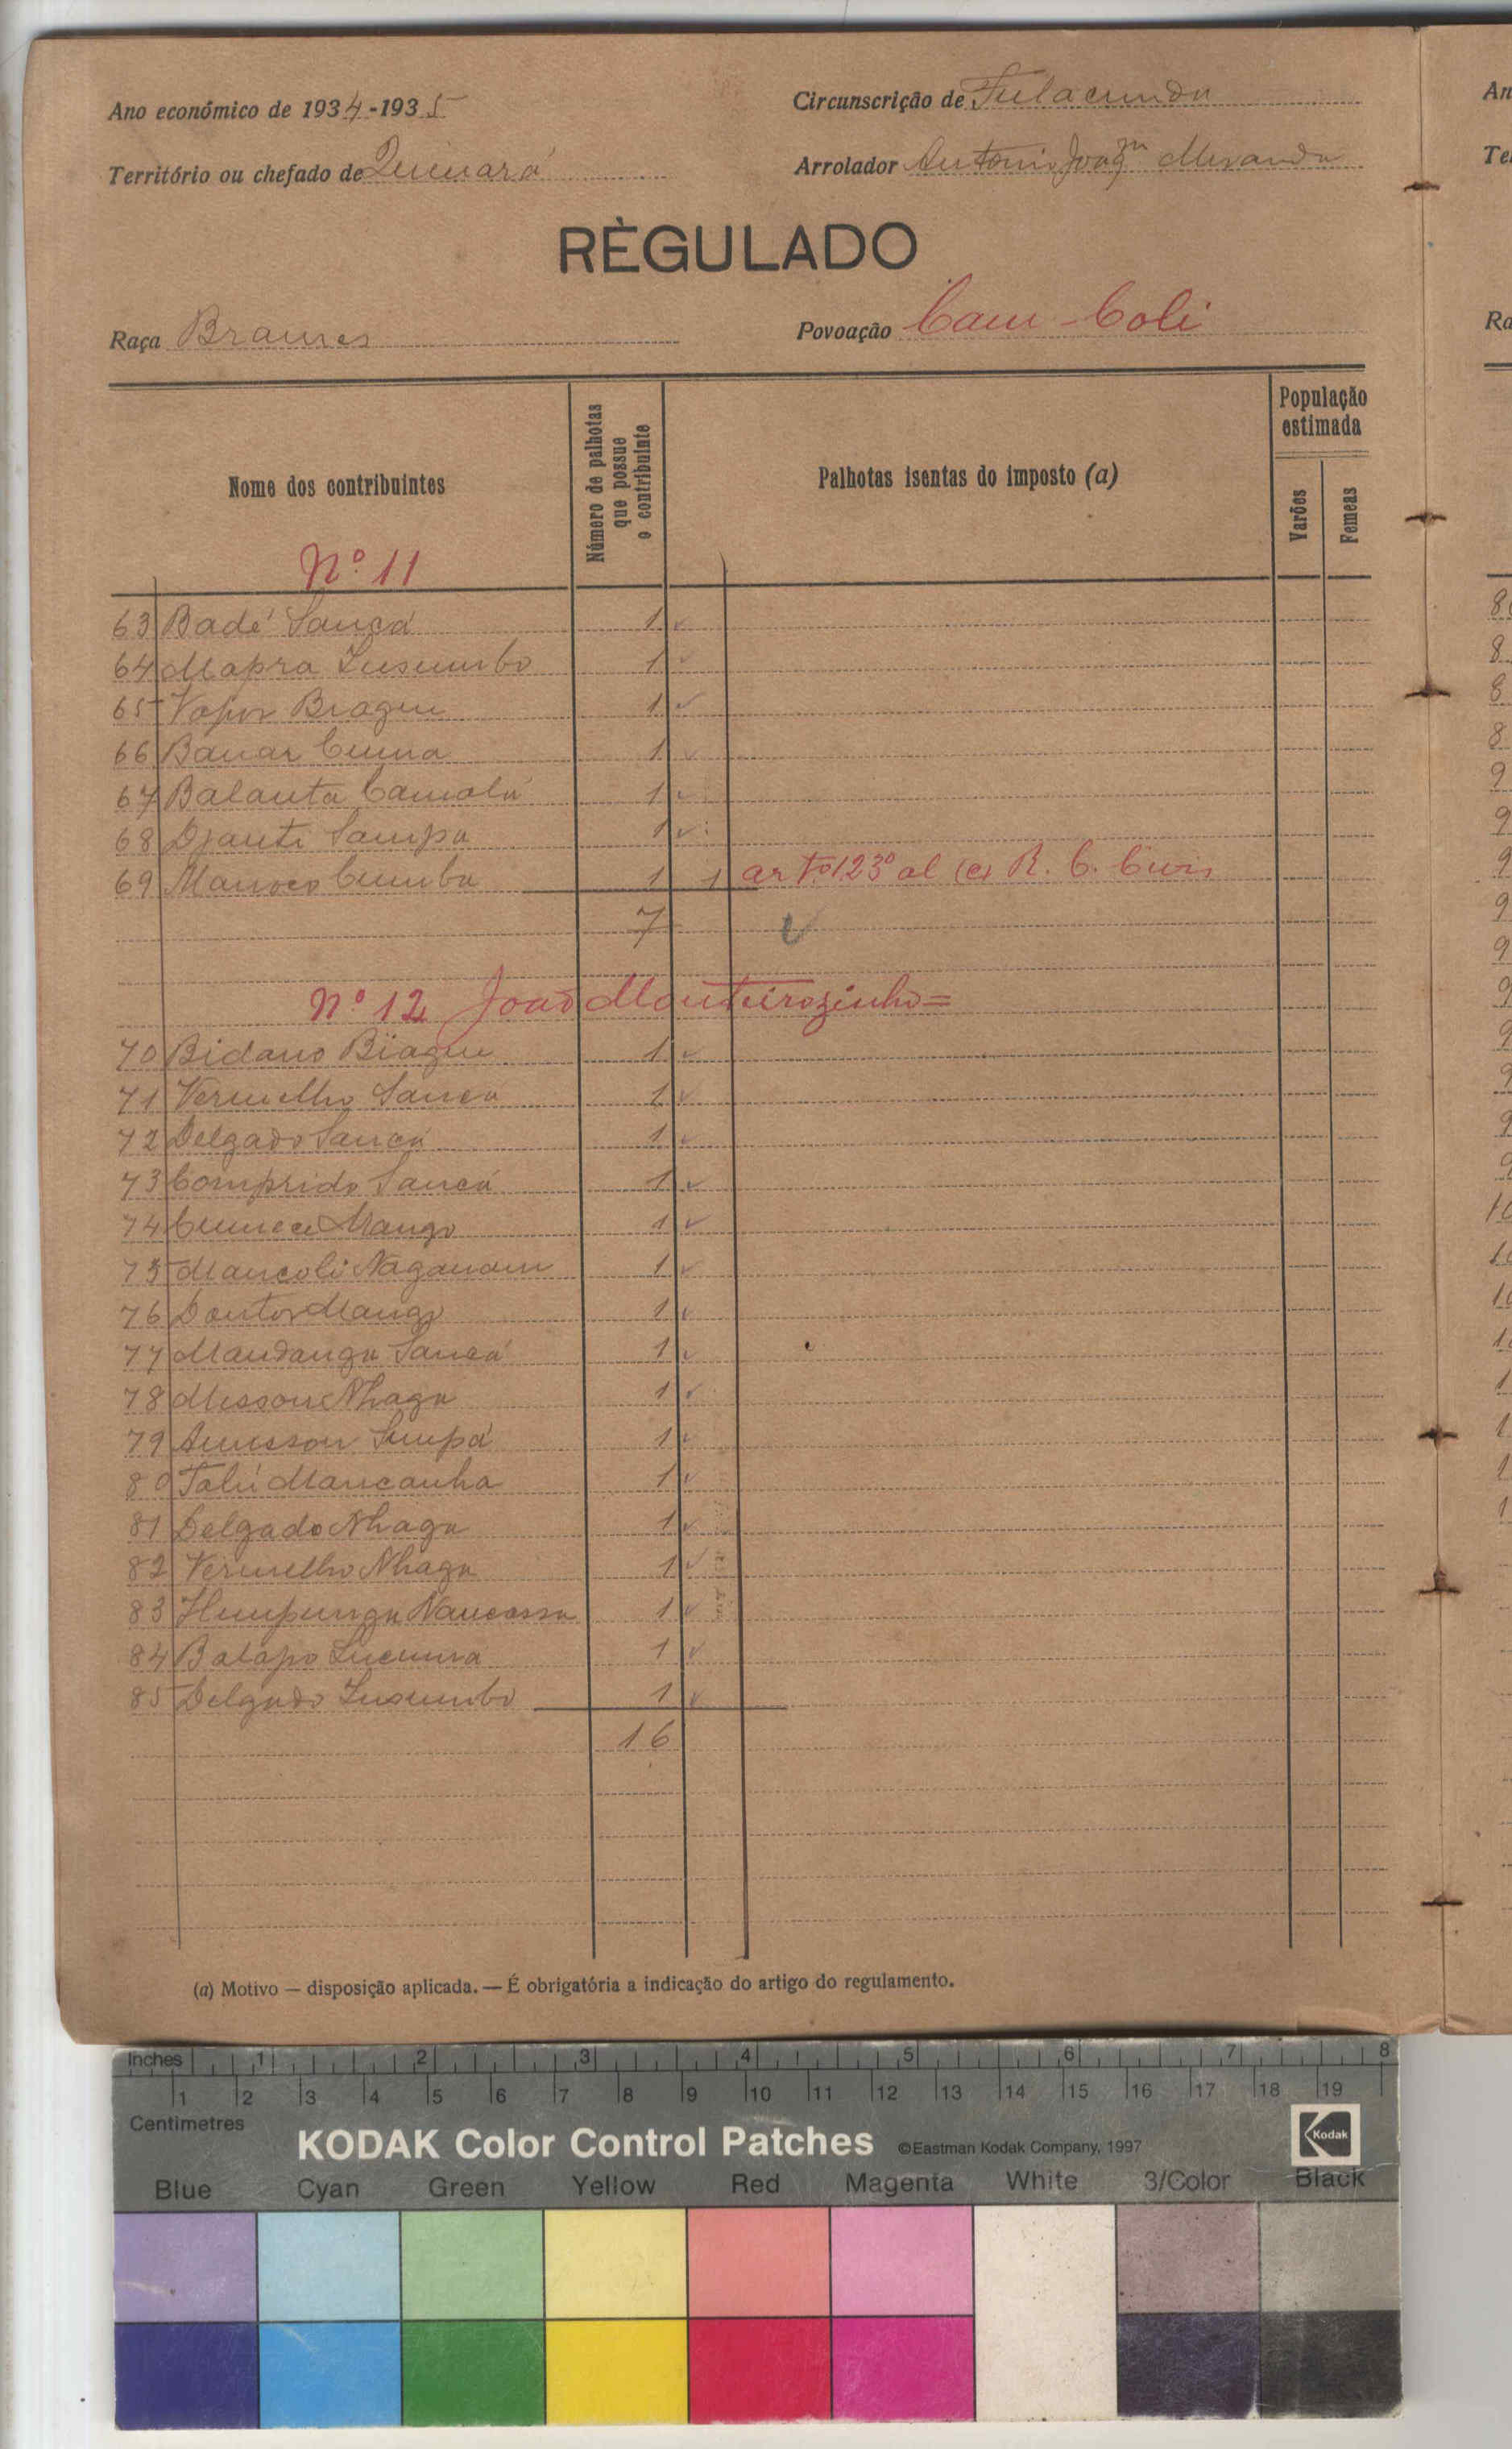 Ano económico de 1934-1935
Circunscrição de Fulacunda
Território ou chefado de Quinará
Arrolador Antonio Joaqm Miranda
RÈGULADO
Raça Brames
Povoação Cam-Coli
Nome dos contribuintes
Número de palhotas que possue o contribuinte
Palhotas isentas do imposto (a)
População estimada
Varões
Femeas
Nº 11
63 Badé Sancá 1
64 Mapra Lusumbo 1
65 Vapor Biague 1
66 Banar Cuma 1
67 Balanta Camalá 1
68 Djanti Sampa 1
69 Manoco Cumba 1 1 artº 123º al (e) R. C. Civis
7
Nº 12 João Monteirozinho =
70 Bidano Biague 1
71 Vermelho Sancá 1
72 Delgado Sancá 1
73 Comprido Sancá 1
74 Mango 1
75 Mancoli Naganam 1
76 Doutor Mango 1
77 Mandanga Sancá 1
78 Misson Nhaga 1
79 Amisson Impá 1
80 Talú Mancanha 1
81 Delgado Nhaga 1
82 Vermelho Nhaga 1
83 Nancassa 1
84 Batapo 1
85 Delgado Lusumbo 1
16
(a) Motivo — disposição aplicada. — É obrigatória a indicação do artigo do regulamento.
Inches 1 2 3 4 5 6 7 8
1 2 3 4 5 6 7 8 9 10 11 12 13 14 15 16 17 18 19
Centimetres
KODAK Color Control Patches ©Eastman Kodak Company, 1997 Kodak
Blue Cyan Green Yellow Red Magenta White 3/Color Black